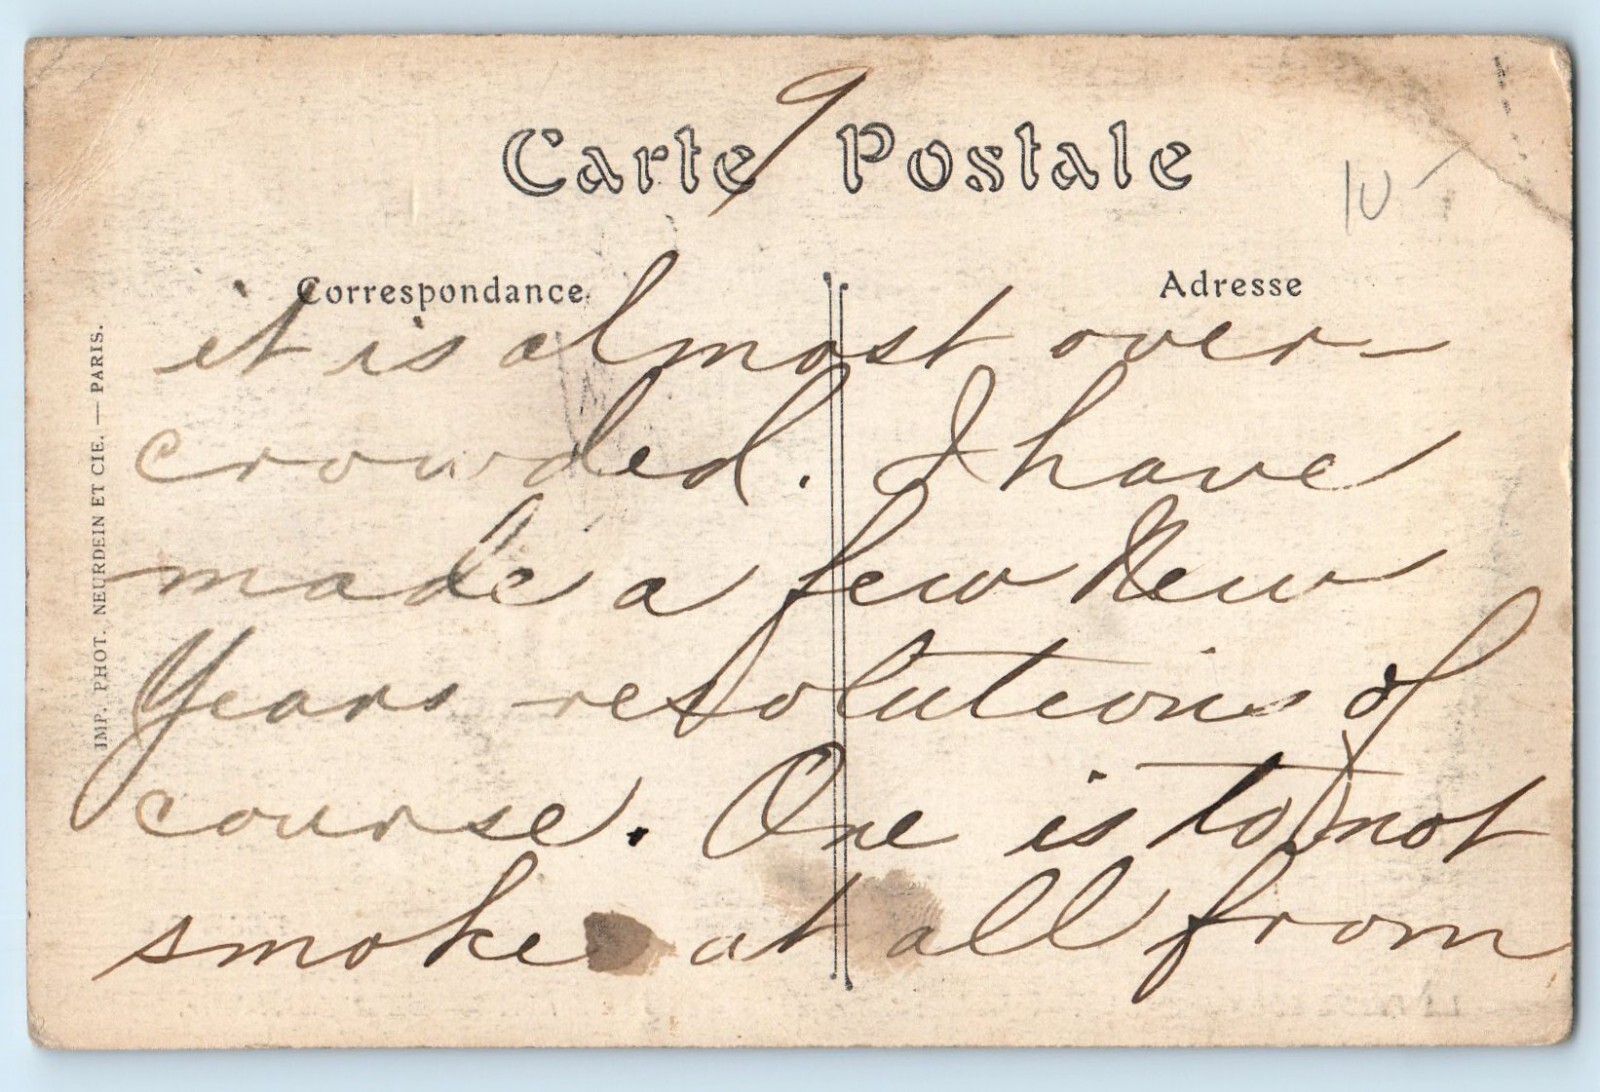 9
Carte Postale
10
Correspondance
Adresse
it is almost over-
crowded. I have
made a few New
Years resolutions of
course. One is to not
smoke at all from
IMP. PHOT. NEURDEIN ET CIE. — PARIS.